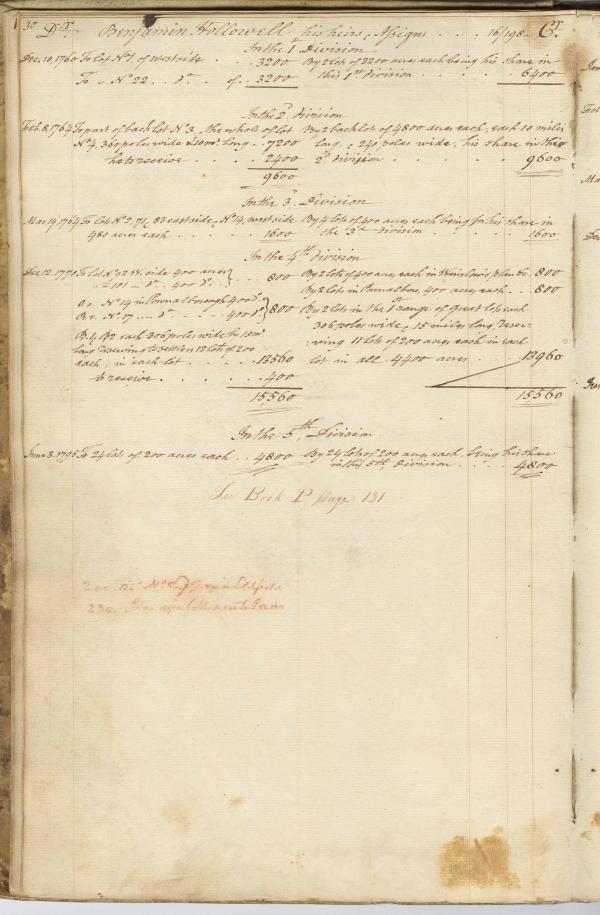 30 Dr. Benjamin Hollowell his heirs, Assigns . . 16/198 . Cr.
In the 1 Division
Dec. 10, 1760 To lot No 1, of west side . . 3200 By 2 lots of 3200 acres each being his share in
To " No 22 . . do . . of . 3200 this 1st division . . . . . 6400
In the 2d. division
Feb. 8, 1764 To part of back lot No 3, the whole of lot By 2 back lots of 4800 acres each, each 10 miles
No 4, 360 poles wide & 10 ms. long . . 7200 long, & 240 poles wide, his share in this
he to receive . . . . 2400 2d. division . . . . . . 9600
9600
In the 3d. Division
Mar 14, 1764 To Lots No 2, 71, & 83 east side, & No 14, west side By 4 lots of 400 acres each being for his share in
480 acres each . . . . . . 1600 the 3d. division . . . . . 1600
In the 4th division
Dec 12, 1770 To lot No 92 W. side 400 acres } By 2 lots of 400 acres each in Winslow's plan &c. 800
" 101 — do. 400 do. } . . 800 By 2 lots in Pownalboro, 400 acres each . . 800
No 14 in Pownalborough 400 do. } 800 By 2 lots in the 1st range of great lots each
No. 17 . . . . do . . . . 400 do } 306 poles wide, 15 miles long, reser-
B4, B2 each 306 poles wide to 15 ms. ving 11 lots of 200 acres each in each
long reserving to settlers 12 lots of 200
each, in each lot . . . . . 13560 lot in all 4400 acres . . 13960
to receive . . . . . . . 400
15,560 15560
In the 5th Division
June 3, 1795 To 24 lots of 200 acres each . . 4800 By 24 lots of 200 acres each, being his share
in this 5th, division . . . . 4800
See Book P page 131